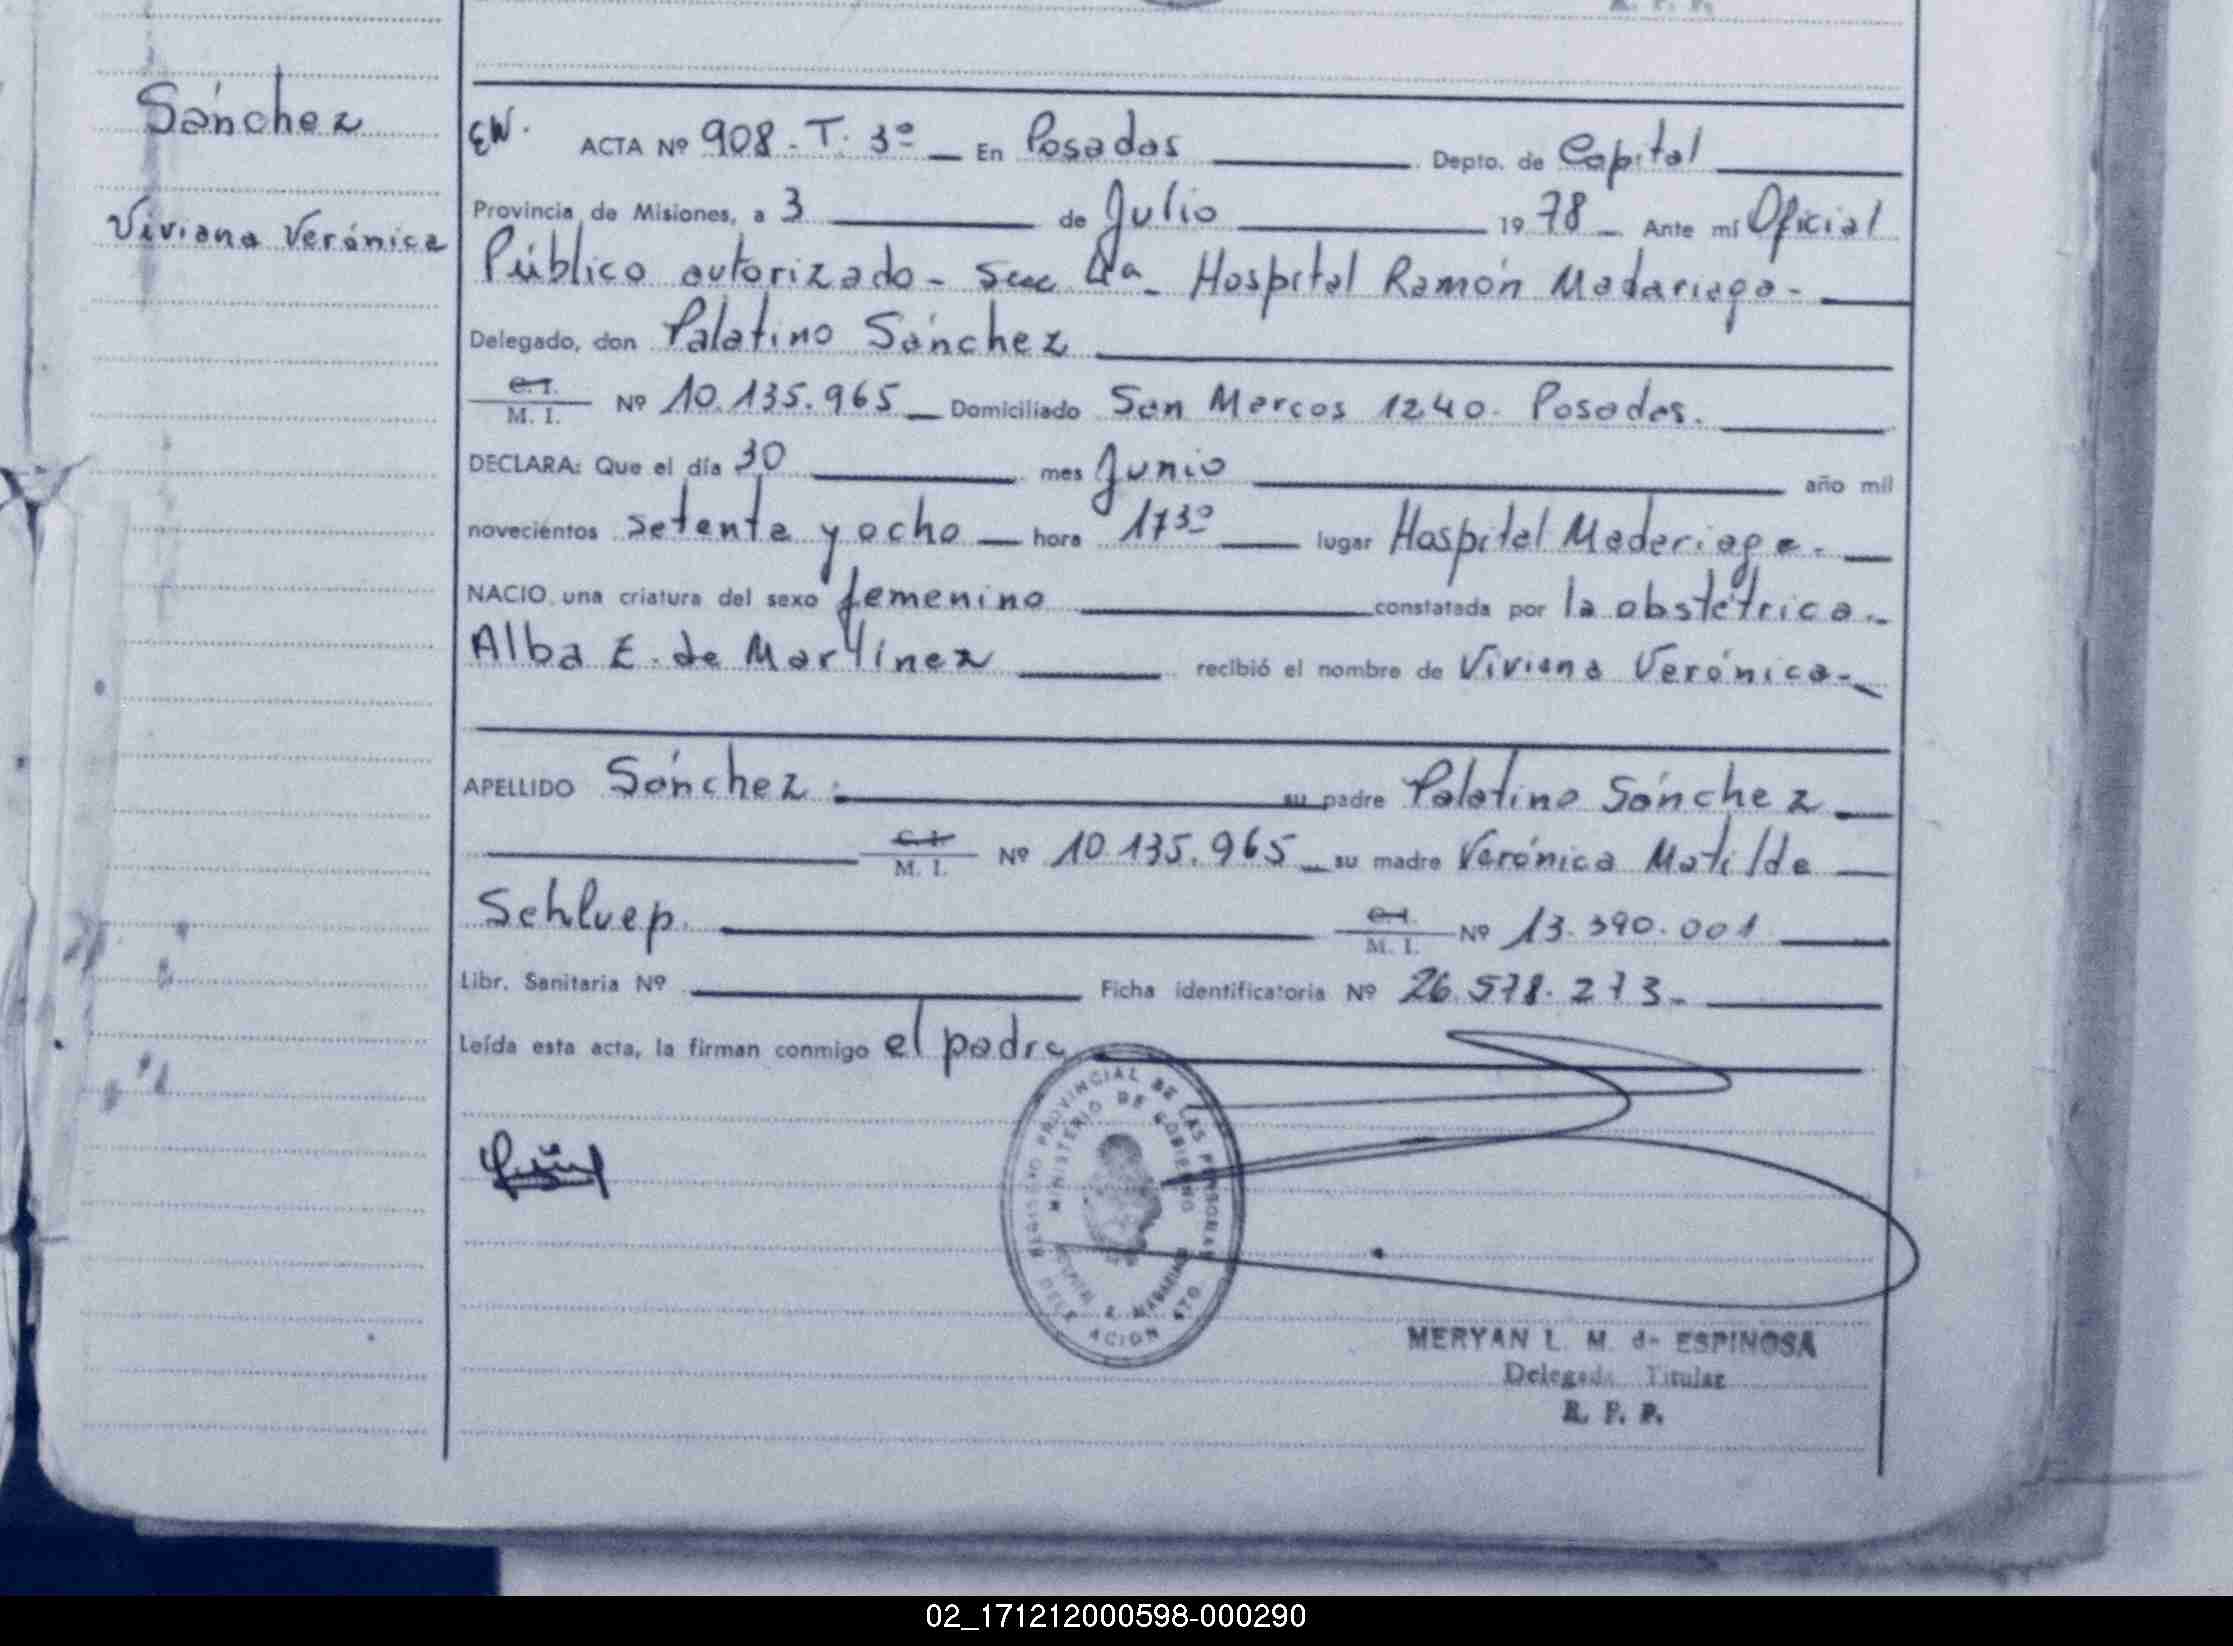 R. P. P.
Sánchez
Viviana Verónica
EW. ACTA Nº 908 - T. 3º En Posadas Depto. de Capital
Provincia de Misiones, a 3 de Julio 1978 - Ante mí Oficial
Público autorizado - Secc 4a - Hospital Ramón Madariaga -
Delegado, don Palatino Sánchez
C. I. / M. I. Nº 10.135.965 Domiciliado San Marcos 1240. Posadas.
DECLARA: Que el día 30 mes Junio año mil
novecientos setenta y ocho hora 17 30 lugar Hospital Madariaga -
NACIO una criatura del sexo femenino constatada por la obstétrica -
Alba E. de Martínez recibió el nombre de Viviana Verónica -
APELLIDO Sánchez su padre Palatino Sánchez
C. I. / M. I. Nº 10.135.965 su madre Verónica Matilde
Schluep. C. I. / M. I. Nº 13.390.001
Libr. Sanitaria Nº Ficha identificatoria Nº 26.578.273 -
Leída esta acta, la firman conmigo el padre
REGISTRO PROVINCIAL DE LAS PERSONAS
MINISTERIO DE GOBIERNO
HOSPITAL R. MADARIAGA
DELEGACION 4TO
MERYAN L. M. de ESPINOSA
Delegada Titular
R. P. P.
02_171212000598-000290